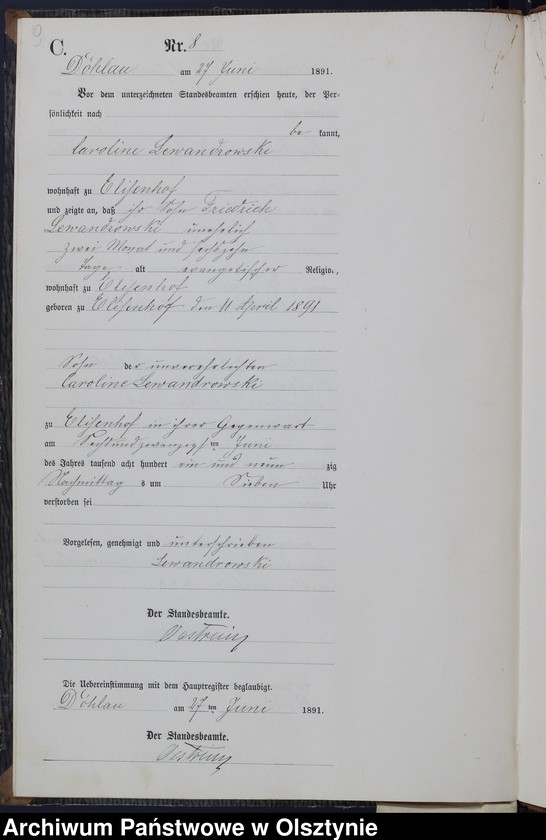 9
C.
Nr. 8
Döhlau am 27 Juni 1891.
Vor dem unterzeichneten Standesbeamten erschien heute, der Per-
sönlichkeit nach
be kannt,
Caroline Lewandrowski
wohnhaft zu Elisenhof
und zeigte an, daß ihr Sohn Friedrich
Lewandrowski unehelich
zwei Monat und sechszehn
Tage alt evangelischer Religion,
wohnhaft zu Elisenhof
geboren zu Elisenhof den 11 April 1891
Sohn der unverehelichten
Caroline Lewandrowski
zu Elisenhof in ihrer Gegenwart
am Sechsundzwanzigsten Juni
des Jahres tausend acht hundert ein und neun zig
Nachmittag s um Sieben Uhr
verstorben sei
Vorgelesen, genehmigt und unterschrieben
Lewandrowski
Der Standesbeamte.
Die Uebereinstimmung mit dem Hauptregister beglaubigt.
Döhlau am 27 ten Juni 1891.
Der Standesbeamte.
Archiwum Państwowe w Olsztynie